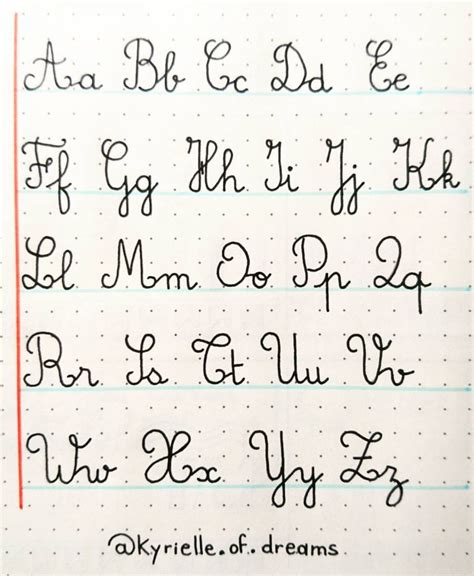 Aa Bb Cc Dd Ee
Ff Gg Hh Ii Jj Kk
Ll Mm Oo Pp Qq
Rr Ss Tt Uu Vv
Ww Xx Yy Zz
@kyrielle.of.dreams